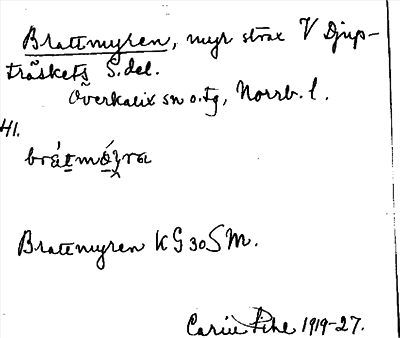 Brattmyren, myr strax V Djup-
träskets S. del.
Överkalix sn o. tg, Norrb. l.
41.
Brattmyren KG 30 SM.
Carin Pihl 1919-27.